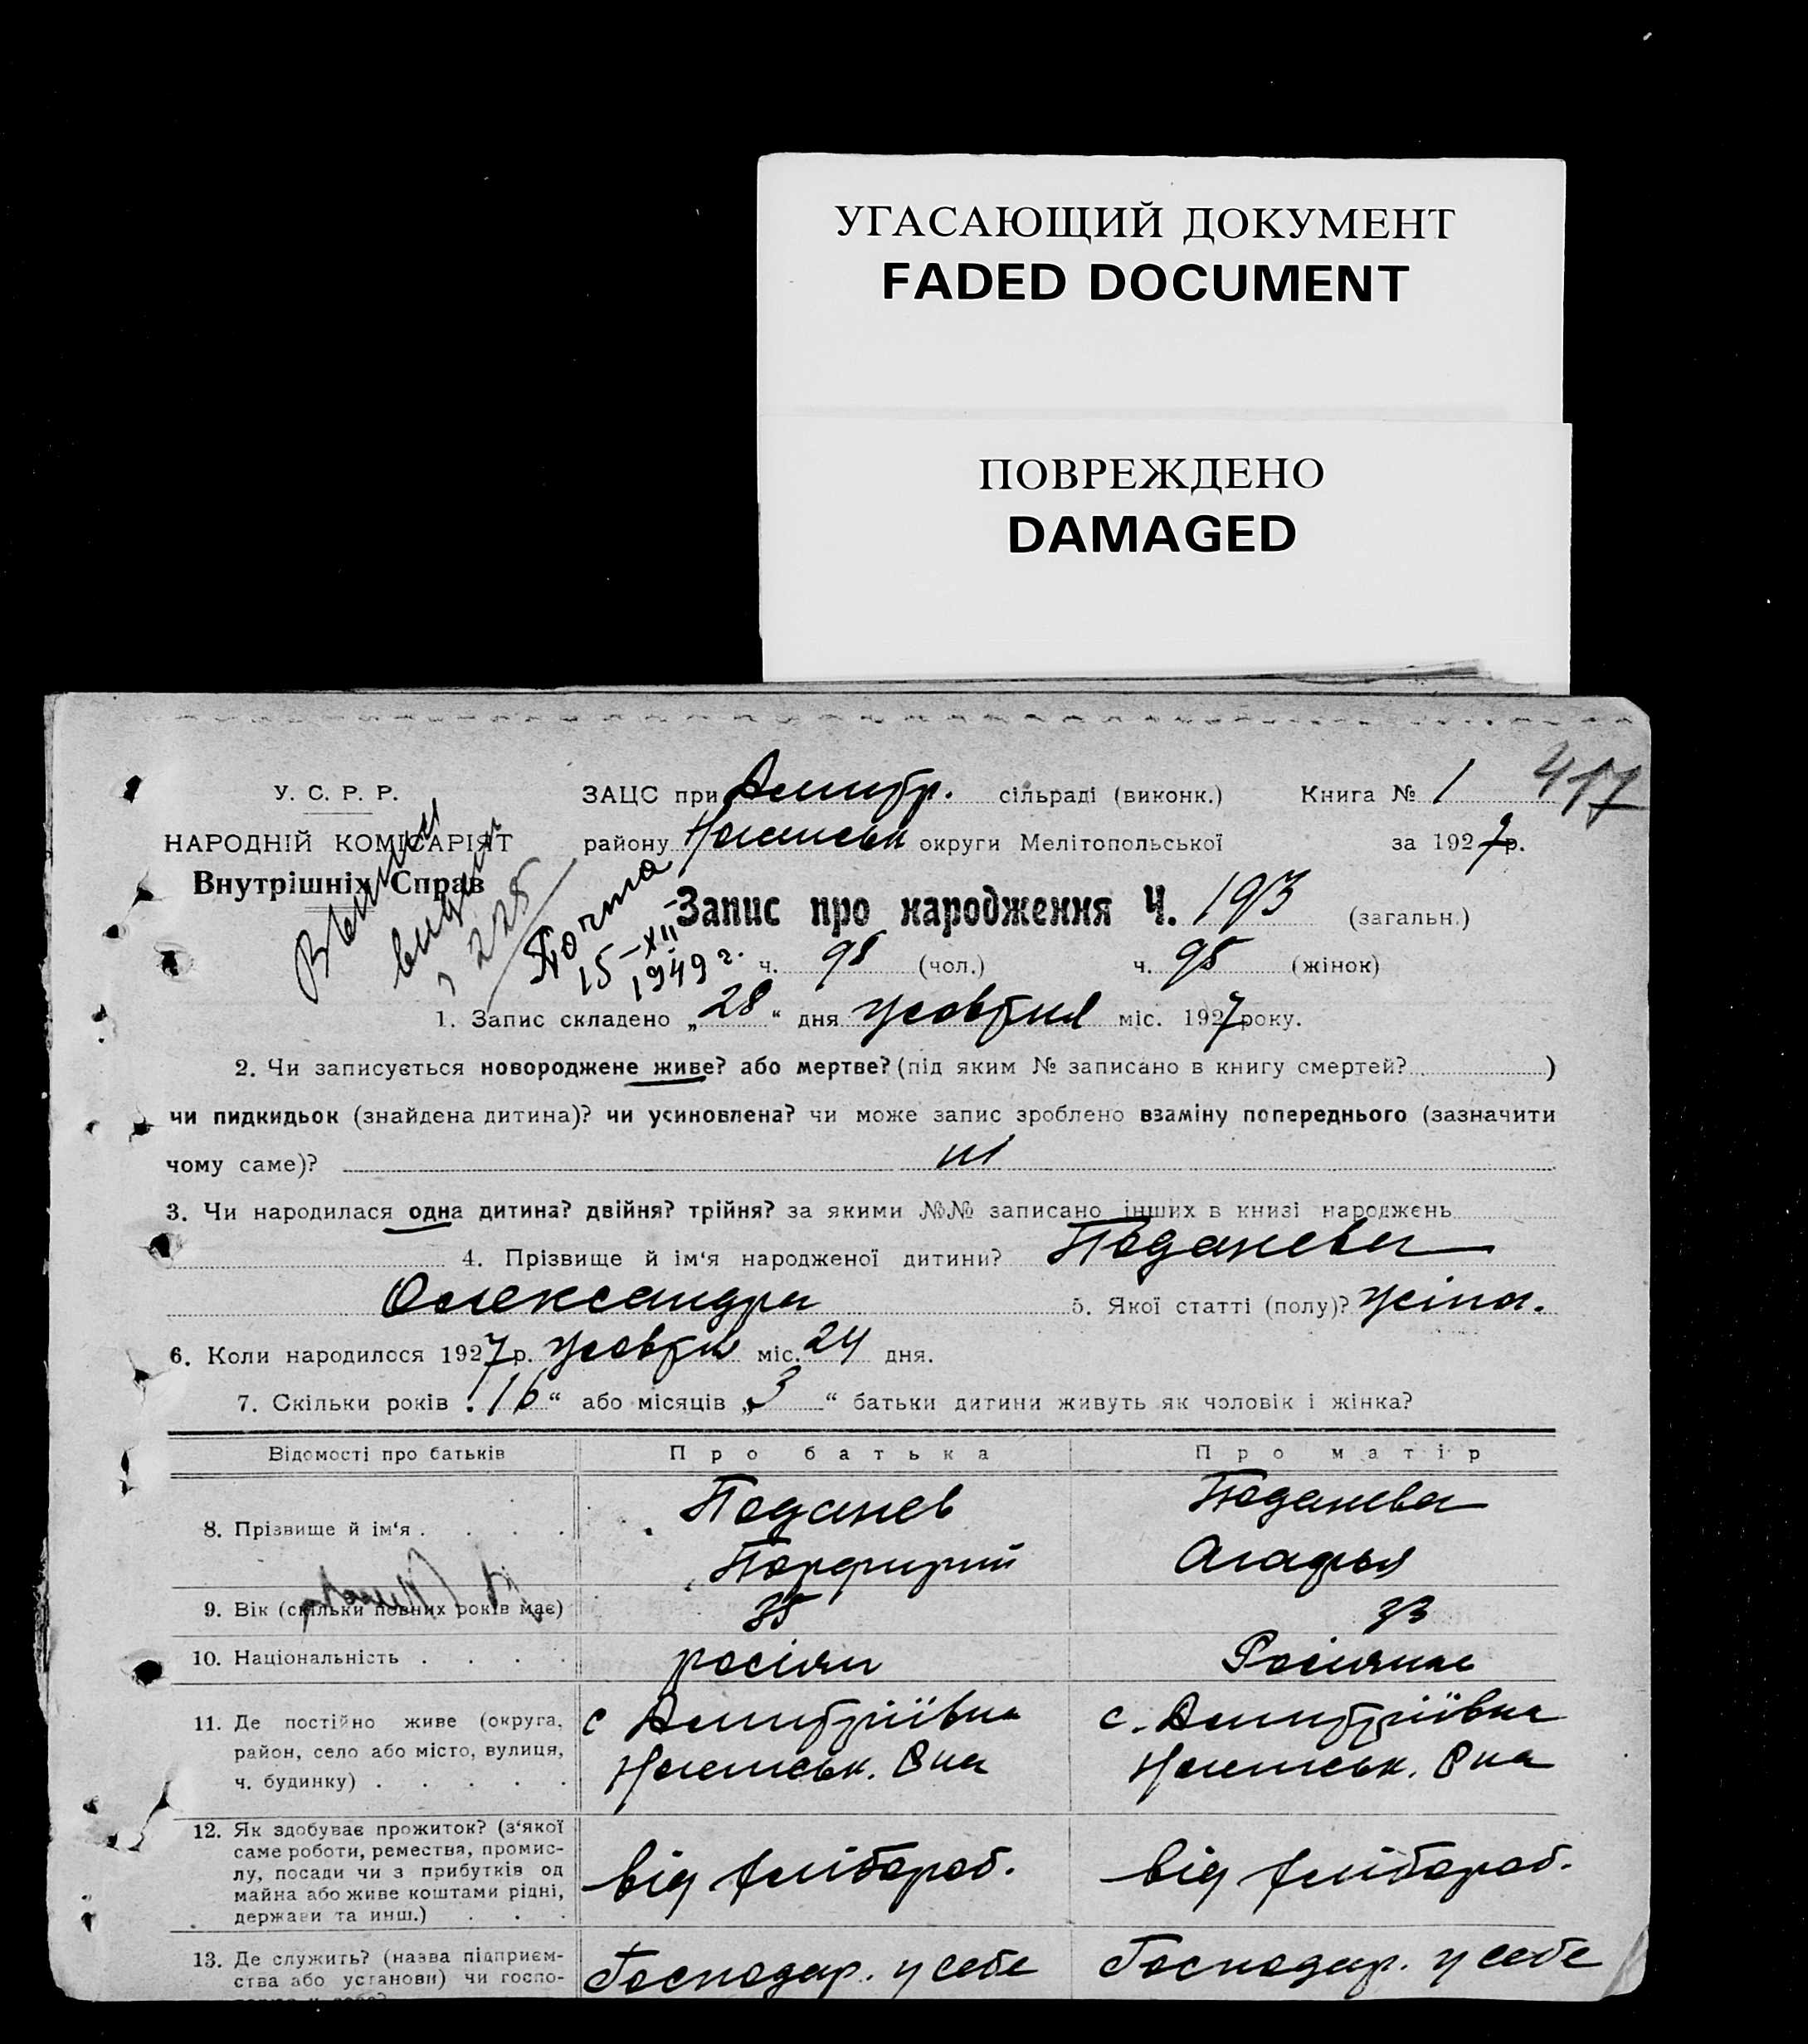 УГАСАЮЩИЙ ДОКУМЕНТ
FADED DOCUMENT
ПОВРЕЖДЕНО
DAMAGED
417
У. С. Р. Р.
НАРОДНІЙ КОМІСАРІЯТ
Внутрішніх Справ
ЗАЦС при Дмитр. сільраді (виконк.) Книга № 1
району округи Мелітопольської за 1927 р.
Почта
15-XII-
1949 г.
Запис про народження Ч. 193 (загальн.)
ч. 98 (чол.) ч. 95 (жінок)
1. Запис складено „28“ дня жовтня міс. 1927 року.
2. Чи записується новороджене живе? або мертве? (під яким № записано в книгу смертей? )
чи пидкидьок (знайдена дитина)? чи усиновлена? чи може запис зроблено взаміну попереднього (зазначити
чому саме)? ні
3. Чи народилася одна дитина? двійня? трійня? за якими №№ записано інших в книзі народжень
4. Прізвище й ім‘я народженої дитини? Поданева
Олександра 5. Якої статті (полу)? жіноч.
6. Коли народилося 1927 р. жовтн міс. 24 дня.
7. Скільки років „16“ або місяців „3“ батьки дитини живуть як чоловік і жінка?
Відомості про батьків Про батька Про матір
8. Прізвище й ім‘я . . . . Поданев Поданева
Порфирий Агафья
9. Вік (скільки повних років має) 35 33
10. Національність . . . . росіян Росіянка
11. Де постійно живе (округа, район, село або місто, вулиця, ч. будинку) . . . . . с Дмитріївка с. Дмитріївка
12. Як здобуває прожиток? (з‘якої саме роботи, ремества, промислу, посади чи з прибутків од майна або живе коштами рідні, держави та инш.) . . . від хлібороб. від хлібороб.
13. Де служить? (назва підприєм-
ства або установи) чи госпо- Господар. у себе Господар. у себе